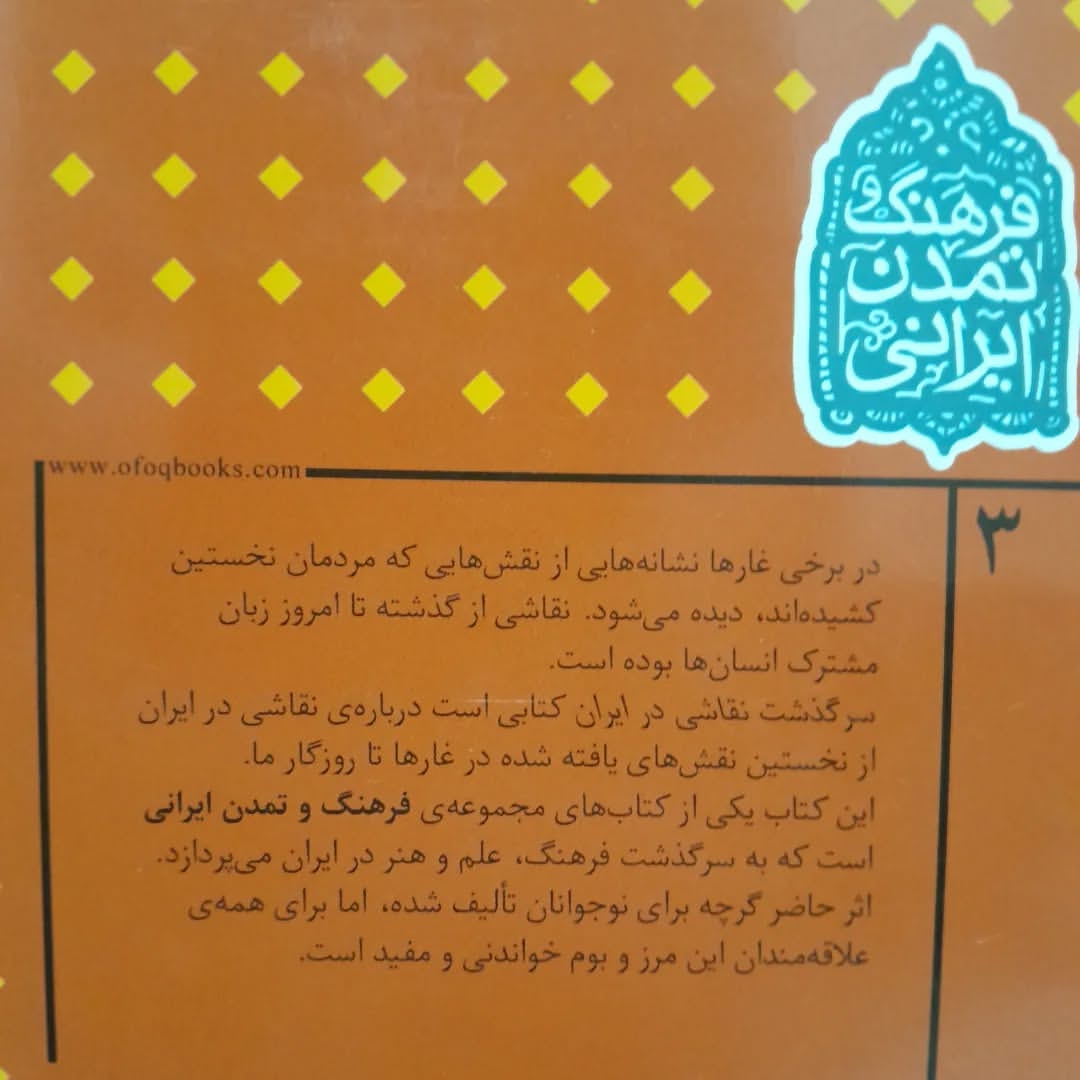 فرهنگ و
تمدن
ایرانی
www.ofoqbooks.com
۳
در برخی غارها نشانه‌هایی از نقش‌هایی که مردمان نخستین
کشیده‌اند، دیده می‌شود. نقاشی از گذشته تا امروز زبان
مشترک انسان‌ها بوده است.
سرگذشت نقاشی در ایران کتابی است درباره‌ی نقاشی در ایران
از نخستین نقش‌های یافته شده در غارها تا روزگار ما.
این کتاب یکی از کتاب‌های مجموعه‌ی فرهنگ و تمدن ایرانی
است که به سرگذشت فرهنگ، علم و هنر در ایران می‌پردازد.
اثر حاضر گرچه برای نوجوانان تألیف شده، اما برای همه‌ی
علاقه‌مندان این مرز و بوم خواندنی و مفید است.